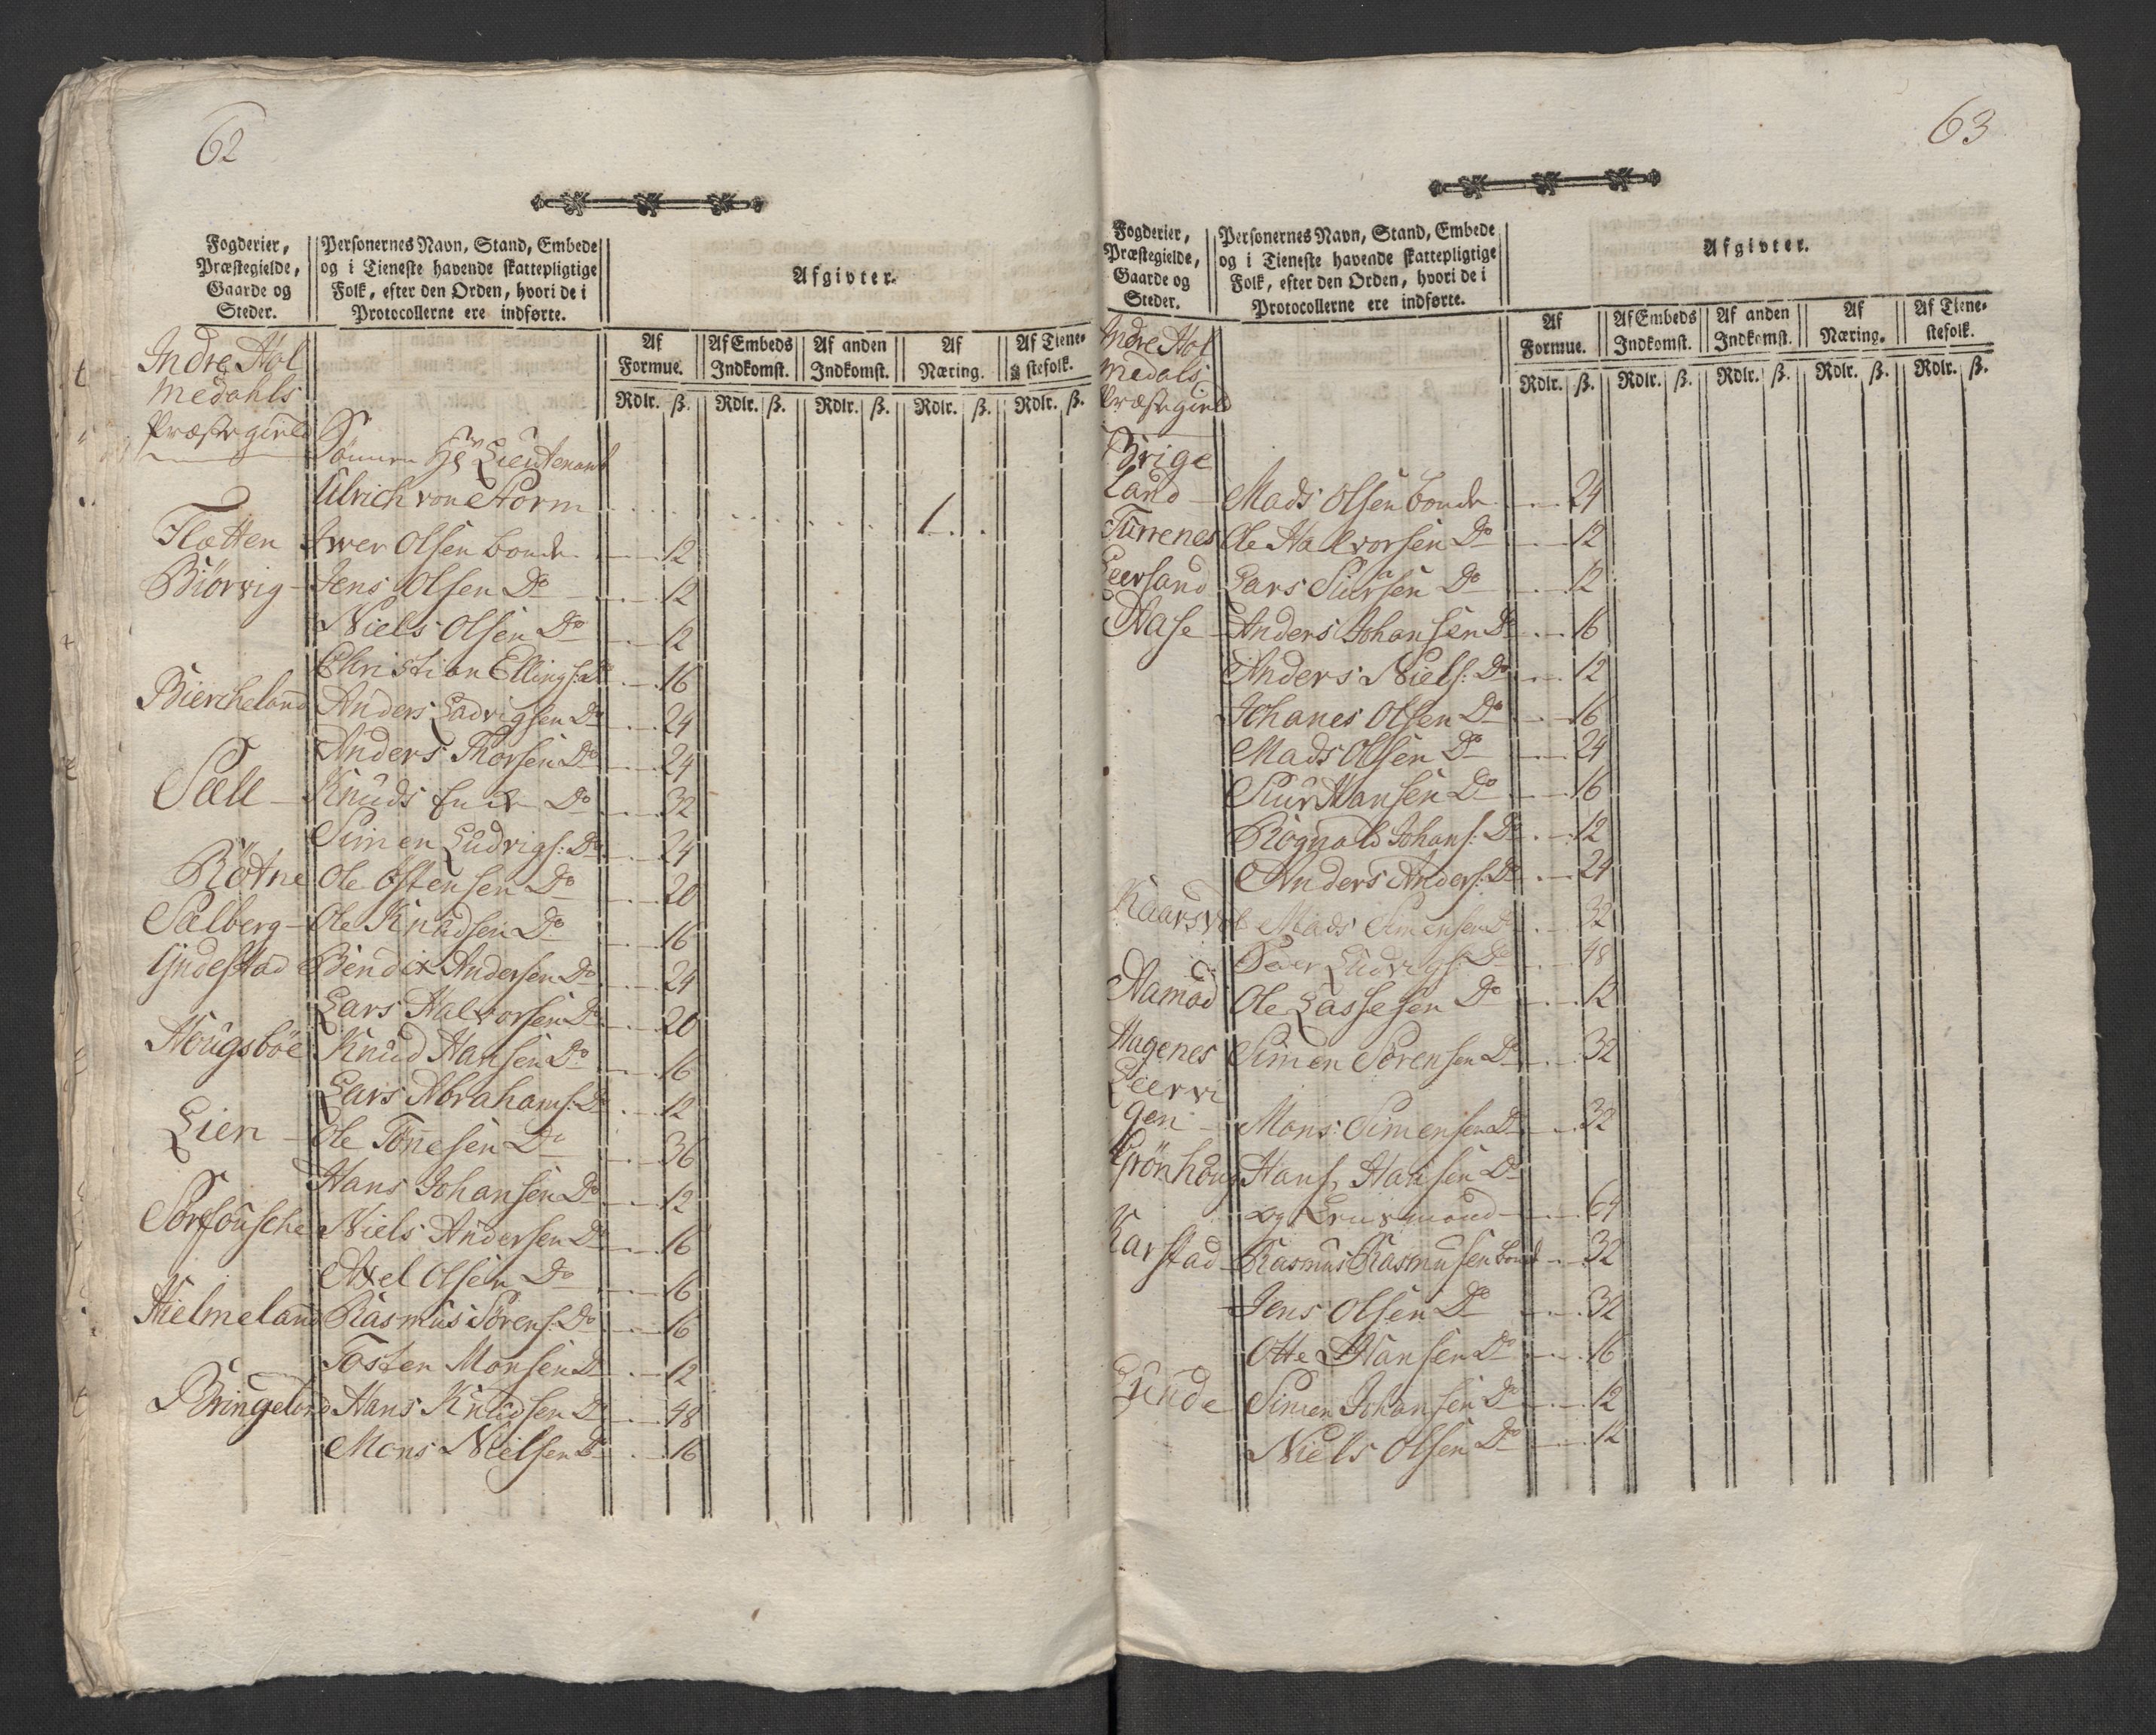 62
Fogderier,
Præstegielde,
Gaarde og
Steder.
Personernes Navn, Stand, Embede
og i Tieneste havende skattepligtige
Folk, efter den Orden, hvori de i
Protocollerne ere indførte.
Afgivter.
Af Formue. Af Embeds Indkomst. Af anden Indkomst. Af Næring. Af Tienestefolk.
Rdlr. ß. Rdlr. ß. Rdlr. ß. Rdlr. ß. Rdlr. ß.
Indre Hol
medahls
Præstegield
Lieutenant
Ulrich von Storm 1
Flotten Iwer Olsen bonde 12
Biörvig Jens Olsen Do 12
Niels Olsen Do 12
Christian Ellings: Do 16
Biercheland Anders Ladvigsen Do 24
Anders Thorsen Do 24
Sæll Knuds Do 32
Simen Ludvigs: Do 24
Rötne Ole Östensen Do 20
Sælberg Ole Knudsen Do 16
Yndestad Bendix Andersen Do 24
Lars Halvorsen Do 20
Hougsböe Knud Hansen Do 16
Lars Abrahams: Do 12
Lien Ole Tönesen Do 36
Hans Johansen Do 12
Niels Andersen Do 16
Axel Olsen Do 16
Hielmeland Rasmus Sörens: Do 16
Tosten Monsen Do 12
Bringeland Hans Knudsen Do 48
Mons Nielsen Do 16
63
Fogderier,
Præstegielde,
Gaarde og
Steder.
Personernes Navn, Stand, Embede
og i Tieneste havende skattepligtige
Folk, efter den Orden, hvori de i
Protocollerne ere indførte.
Afgivter.
Af Formue. Af Embeds Indkomst. Af anden Indkomst. Af Næring. Af Tienestefolk.
Rdlr. ß. Rdlr. ß. Rdlr. ß. Rdlr. ß. Rdlr. ß.
Indre Hol
medals
Præstegield
Brige
Land Mads Olsen bonde 24
Turrenes Ole Halvorsen Do 12
Leersand Lars Siursen Do 12
Aase Anders Johansen Do 16
Anders Niels: Do 12
Johanes Olsen Do 16
Mads Olsen Do 24
Siur Hansen Do 16
Rognald Johans: Do 12
Anders Anders: Do 24
Mads Simensen Do 32
Peder Ludvigs: Do 48
Aamod Ole Lassesen Do 12
Hagenes Simen Sörensen Do 32
Leervi
gen Mons Simensen Do 32
Grönhoug Hans Hansen Do
og 64
Karstad Rasmus Rasmusen bonde 32
Jens Olsen Do 32
Otte Hansen Do 16
Lunde Simen Johansen Do 12
Niels Olsen Do 12